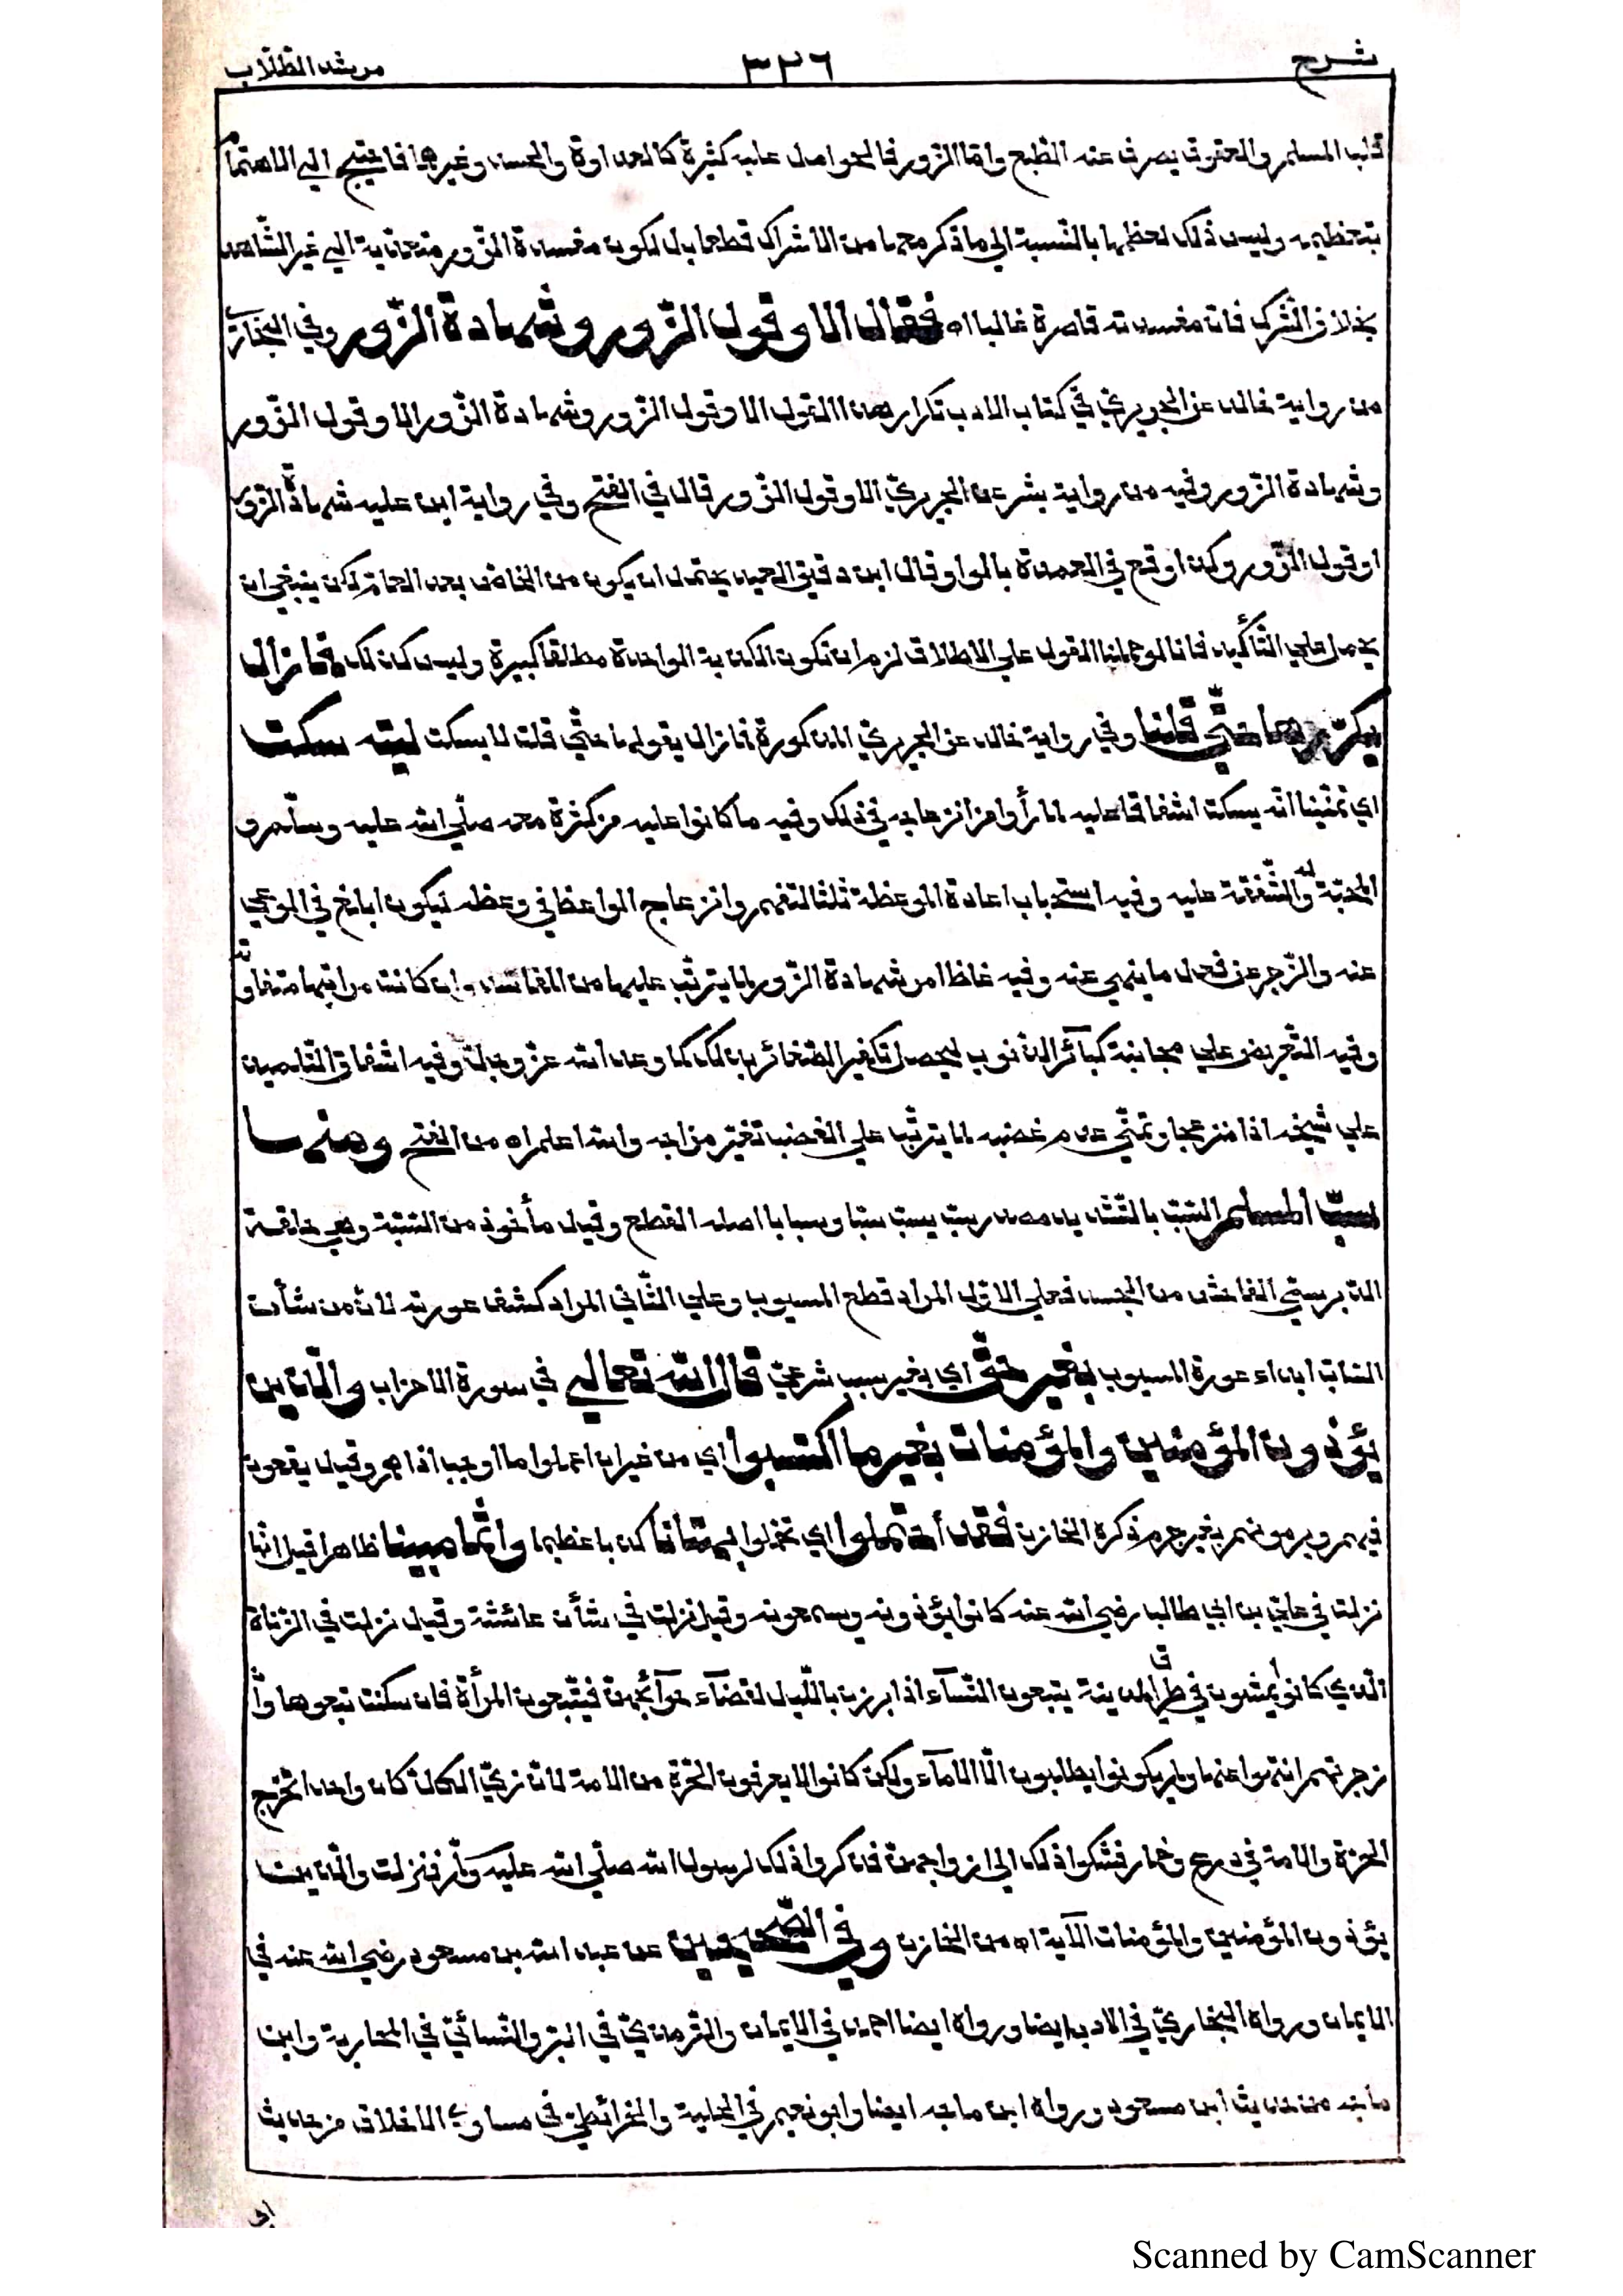 شرح ٣٢٦ مرشد الطلّاب
قلب المسلم والعقوق يصرف عنه الطبع وامّا الزور فالحوامل عليه كثيرة كالعداوة والحسد وغيرها فاحتيج الي الاهتمام
بتعظيمه وليس ذلك لعظمها بالنّسبة الي ما ذكر معها من الاشراك قطعا بل لكون مفسدة الزّور متعدية الي غير الشّاهد
بخلاف الشّرك فان مفسدته قاصرة غالبا اه فقال الا وقول الزّور وشهادة الزّور وفي البخاريّ
من رواية خالد عن الجريريّ في كتاب الادب تكرار هذا القول الا وقول الزور وشهادة الزّور الا وقول الزّور
وشهادة الزور وفيه من رواية بشر عن الجريريّ الا وقول الزّور قال في الفتح وفي رواية ابن عليه شهادة الزور
او قول الزّور وكذا وقع في العمدة بالواو قال ابن دقيق العيد يحتمل ان يكون من الخاصّ بعد العام لكن ينبغي ان
يحمل علي التّأكيد فانا لو حملنا القول علي الاطلاق لزم ان تكون الكذبة الواحدة مطلقا كبيرة وليس كذلك فما زال
يكرّرها حتّي قلنا وفي رواية خالد عن الجريريّ المذكورة فما زال يقولها حتّي قلت لا يسكت ليته سكت
اي تمنّينا انّه يسكت اشفاقا عليه لما رأوا من انزعاجه في ذلك وفيه ما كانوا عليه من كثرة معه صلّي الله عليه وسلّم و
المحبّة له والشّفقة عليه وفيه استحباب اعادة الموعظة ثلثا لتفهم وانزعاج الواعظ في وعظه ليكون ابلغ في الوعي
عنه والزّجر عن فعل ما ينهي عنه وفيه غلظ امر شهادة الزّور لما يترتّب عليها من المفاسد وان كانت مراتبها متفاوتة
وفيه التّحريض علي مجانبة كبآئر الذنوب ليحصل تكفير الصّغائر بذلك كما وعد الله عزّ وجلّ وفيه اشفاق التّلميذ
علي شيخه اذا منزعجا وتمنّي عدم غضبه لما يترتّب علي الغضب تغيّر مزاجه والله اعلم اه من الفتح ومنها
سبّ المسلم السّبّ بالتّشديد مصدر سبّ يسبّ سبّا وسبابا اصله القطع وقيل مأخوذ من السّبّة وهي حلقة
الدّبر سمّي الفاحش من الجسد فعلي الاوّل المراد قطع المسبوب وعلي الثّاني المراد كشف عورته لانّ من شأن
السّابّ ابداء عورة المسبوب بغير حقّ اي بغير سبب شرعيّ قال الله تعالي في سورة الاحزاب والّذين
يؤذون المؤمنين والمؤمنات بغير ما اكتسبوا اي من غير ان اعملوا ما اوجب اذاهم وقيل يقعون
فيهم ويرمونهم بغير جرم ذكره الخازن فقد أحتملوا اي تحمّلوا بهتانا كذبا عظيما واثما مبينا ظاهرا قيل انّها
نزلت في عليّ بن ابي طالب رضي الله عنه كانوا يؤذونه ويسمعونه وقيل نزلت في شأن عائشة وقيل نزلت في الزّناة
الّذي كانوا يمشون في طرق المدينة يتبعون النّسآء اذا برزن باللّيل لقضآء حوآئجهنّ فيتبعون المرأة فان سكتت تبعوها وان
زجرتهم انتهوا عنها ولم يكونوا يطلبون الّا الامآء ولكن كانوا لا يعرفون الحرّة من الامة لانّ زيّ الكلّ كان واحدا تخرج
الحرّة والامة في درع وخمار فشكوا ذلك الي ازواجهنّ فذكروا ذلك لرسول الله صلّي الله عليه وسلّم فنزلت والّذين
يؤذون المؤمنين والمؤمنات الآية اه من الخازن وفي الصّحيحين عن عبد الله بن مسعود رضي الله عنه في
الايمان ورواه البخاريّ في الادب ايضا ورواه ايضا احمد في الايمان والترمذيّ في البرّ والنّسائيّ في المحاربة وابن
ماجه من حديث ابن مسعود ورواه ابن ماجه ايضا وابو نعيم في الحلية والخرائطيّ في مساوي الاخلاق من حديث
ابي
Scanned by CamScanner